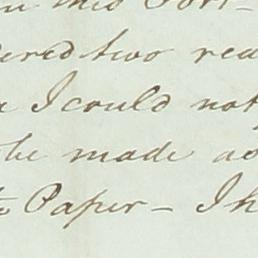 this Port-
ered two rea
I could not
be made as
to Paper - I h